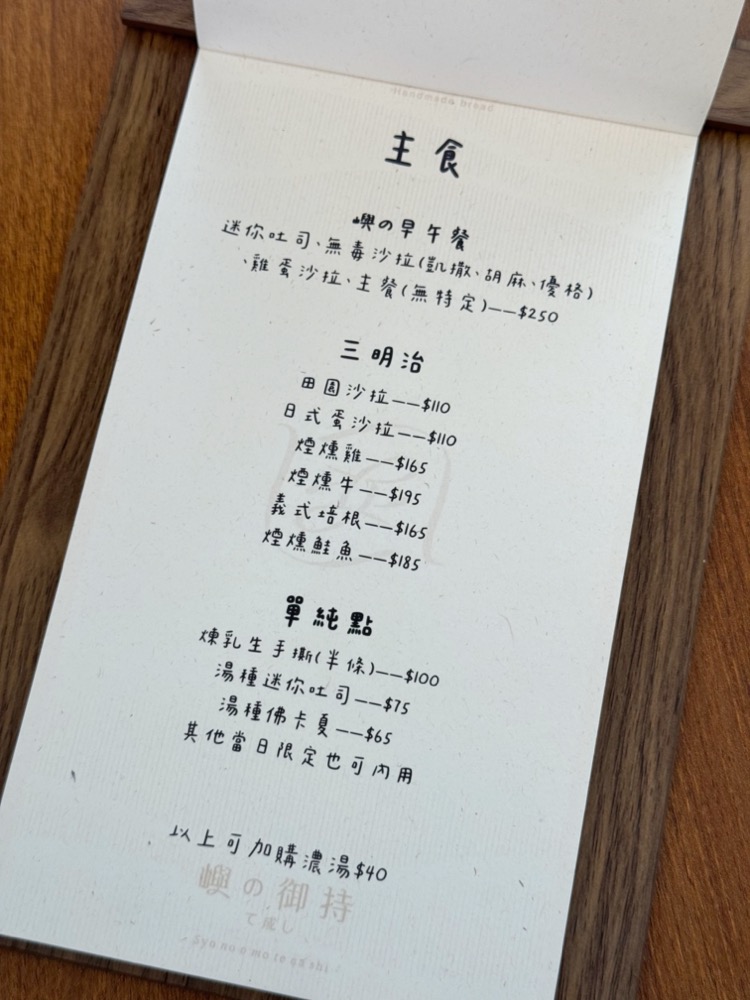 Handmade bread
主食
嶼の早午餐
迷你吐司、無毒沙拉(凱撒、胡麻、優格)
、雞蛋沙拉、主餐(無特定)——$250
三明治
田園沙拉——$110
日式蛋沙拉——$110
煙燻雞——$165
煙燻牛——$195
義式培根——$165
煙燻鮭魚——$185
單純點
煉乳生手撕(半條)——$100
湯種迷你吐司——$75
湯種佛卡夏——$65
其他當日限定也可內用
以上可加購濃湯$40
嶼の御持
て成し
Syo no o mo te na shi